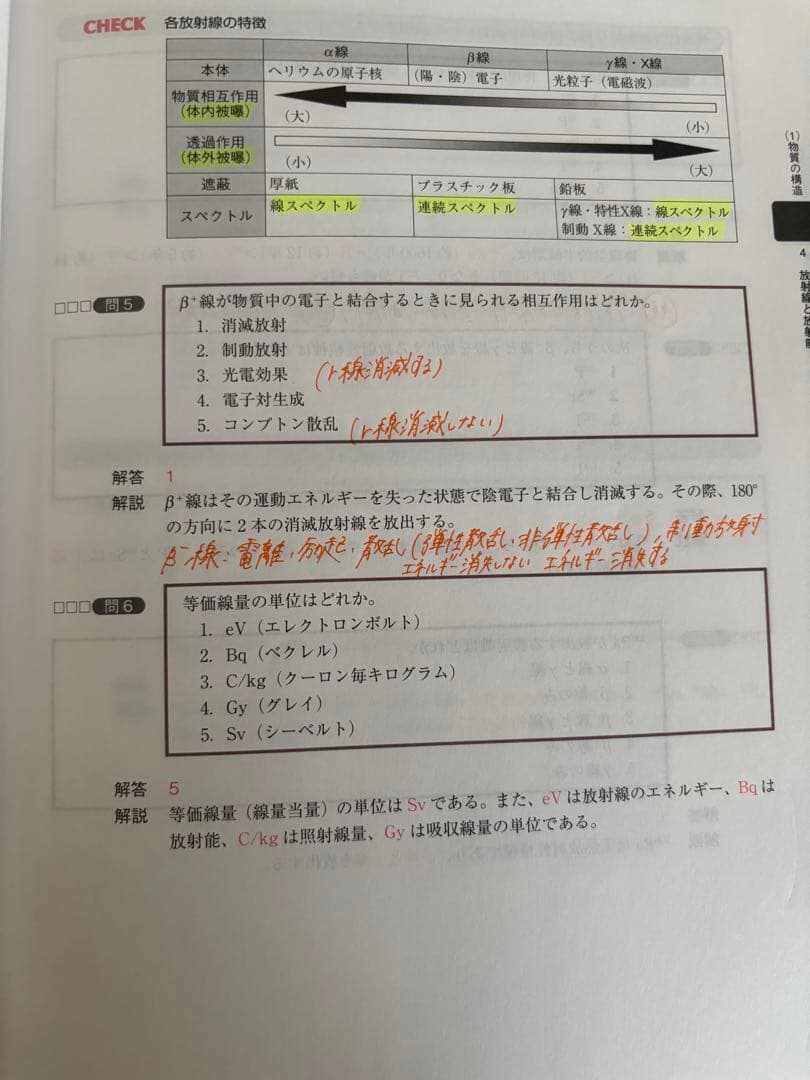 CHECK 各放射線の特徴
α線 β線 γ線・X線
本体 ヘリウムの原子核 (陽・陰)電子 光粒子(電磁波)
物質相互作用
(体内被曝)
(大) (小)
透過作用
(体外被曝)
(小) (大)
遮蔽 厚紙 プラスチック板 鉛板
スペクトル 線スペクトル 連続スペクトル γ線・特性X線:線スペクトル
制動X線:連続スペクトル
(1)物質の構造
4 放射線と放射能
□□□ 問5 β⁺線が物質中の電子と結合するときに見られる相互作用はどれか。
1. 消滅放射
2. 制動放射
3. 光電効果 (r線消滅する)
4. 電子対生成
5. コンプトン散乱 (r線消滅しない)
解答 1
解説 β⁺線はその運動エネルギーを失った状態で陰電子と結合し消滅する。その際、180°
の方向に2本の消滅放射線を放出する。
β⁻線:電離・励起・散乱(弾性散乱・非弾性散乱)、制動放射
エネルギー消失しない エネルギー消失する
□□□ 問6 等価線量の単位はどれか。
1. eV(エレクトロンボルト)
2. Bq(ベクレル)
3. C/kg(クーロン毎キログラム)
4. Gy(グレイ)
5. Sv(シーベルト)
解答 5
解説 等価線量(線量当量)の単位はSvである。また、eVは放射線のエネルギー、Bqは
放射能、C/kgは照射線量、Gyは吸収線量の単位である。